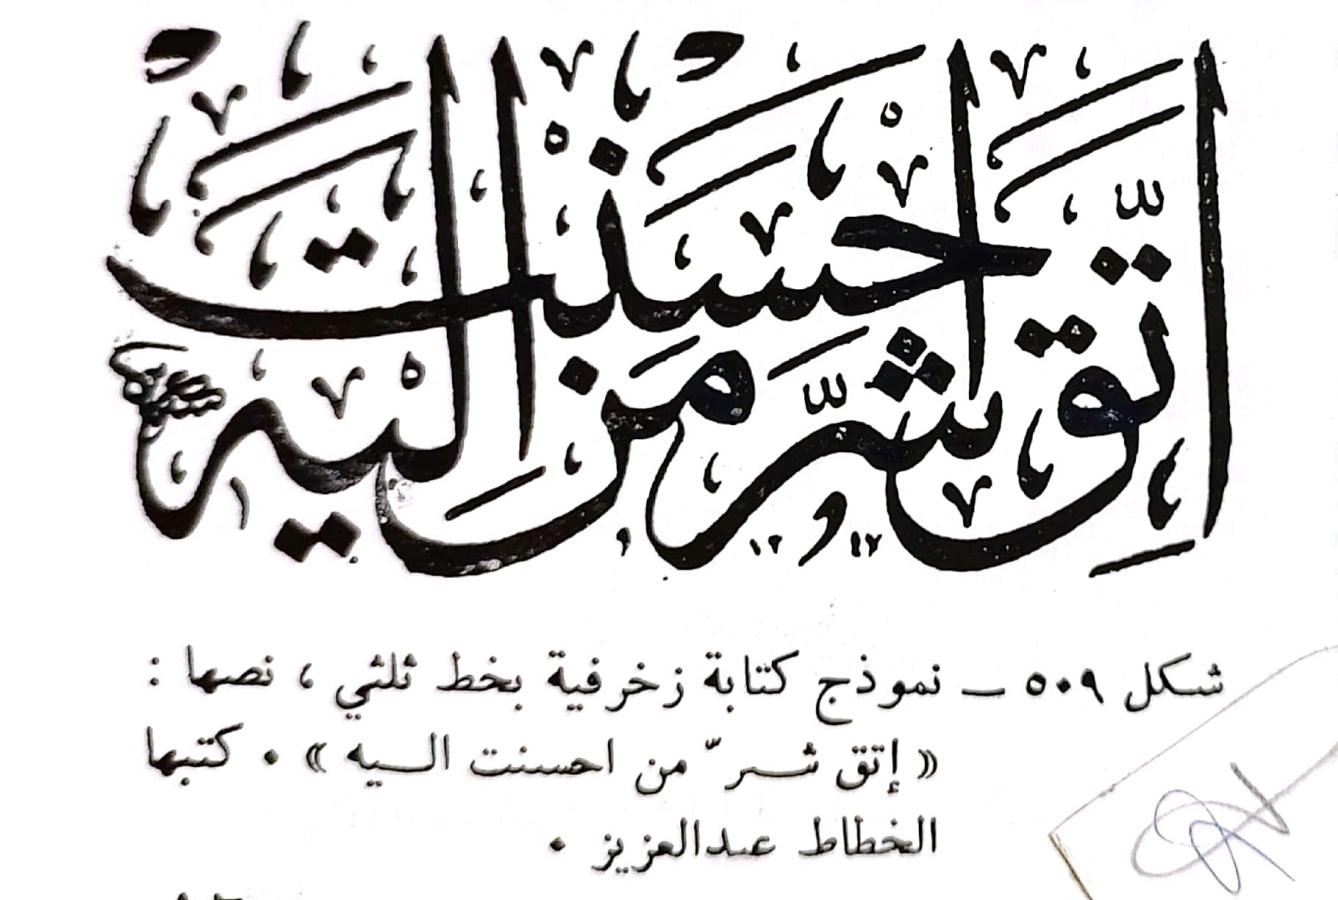 اتّق شرّ من احسنت اليه
شكل ٥٠٩ ــ نموذج كتابة زخرفية بخط ثلثي ، نصها :
« إتق شـــر ّ من احسنت اليه » ٠ كتبها
الخطاط عبدالعزيز ٠